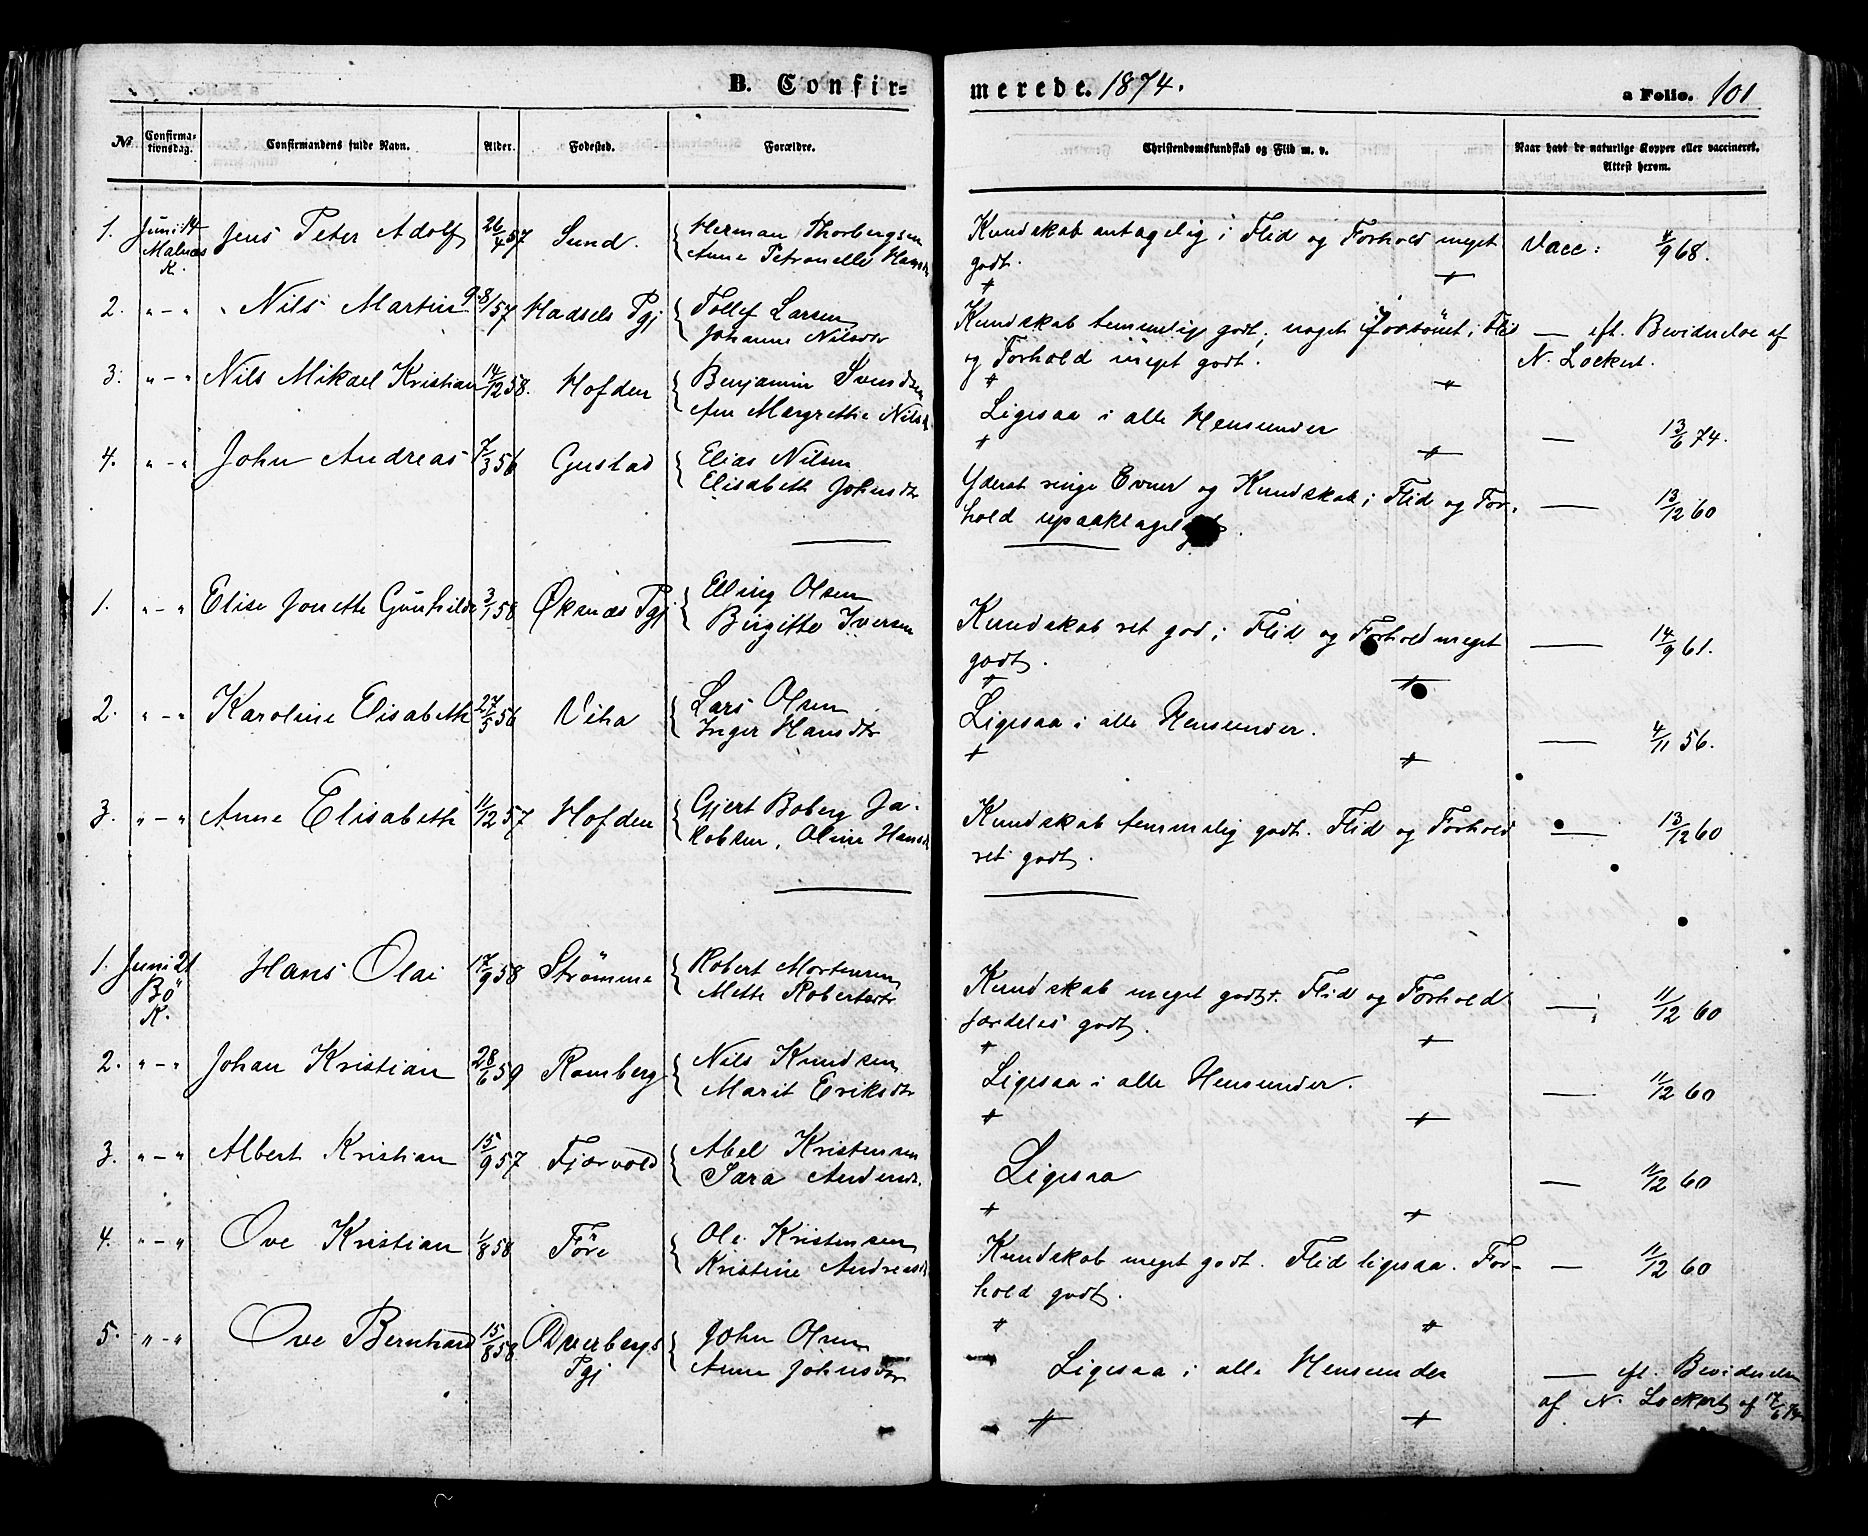 B. Confir=
merede. 1874.
a Folio. 101
№
Confirma-
tionsdag.
Confirmandens fulde Navn.
Alder.
Fødested.
Forældre.
Christendomskundskab og Flid m. v.
Naar havt de naturlige Kopper eller vaccineret.
Attest herom.
1. Juni 14 Malnes K. Jens Peter Adolf 26/4 57 Sund. Herman Thorbergsen
Anne Petronelle Hansd
Kundskab antagelig; Flid og Forhold meget
godt.
Vacc: 4/9 68.
2. " - " Nils Martin 9 8/57 Hadsels Pgj Tollef Larsen
Johanna Nilsdtr
Kundskab temmelig godt; noget forsömt; Flid
og Forhold meget godt.
— eft. Bevidnelse af
N. Lockert.
3. " - " Nils Mikael Kristian 14/12 58. Hofden Benjamin Svendsen
Ane Margrethe Nilsd
Ligesaa i alle Hensender
— 13/6 74.
4. " - " John Andreas 7/3 56 Gustad Elias Nilsen
Elisabeth Johnsdtr
Yderst ringe Evner og Kundskab; Flid og For-
hold upaaklageligt.
— 13/12 60
1. " - " Elise Jonette Gunhilde 3/1 58 Øksnæs Pgj Elling Olsen
Birgitte Iversen
Kundskab ret god; Flid og Forhold meget
godt.
— 14/9 61.
2. " - " Karoline Elisabeth 27/5 56 Vika Lars Olsen
Inger Hansdtr
Ligesaa i alle Hensender.
— 4/11 56.
3. " - " Anne Elisabeth 11/12 57 Hofden Gjert Boberg Ja-
kobsen, Oline Hansd
Kundskab temmelig godt. Flid og Forhold
ret godt.
— 13/12 60
1. Juni 21 Bö K. Hans Olai 17/9 58 Strömme Robert Mortensen
Mette Robertsdtr
Kundskab meget godt. Flid og Forhold
særdeles godt.
— 11/12 60
2. " - " Johan Kristian 28/6 59 Ramberg Nils Knudsen
Marit Eriksdtr
Ligesaa i alle Hensender.
— 11/12 60
3. " - " Albert Kristian 15/9 57 Fjærvold Abel Kristensen
Sara Andersd.
Ligesaa
— 11/12 60
4. " - " Ove Kristian 1/8 58 Före Ole Kristensen
Kristine Andreasd
Kundskab meget godt. Flid ligesaa. For-
hold godt.
— 11/12 60
5. " - " Ove Bernhard 15/8 58 Dverbergs Pgj John Olsen
Anna Johnsdtr
Ligesaa i alle Hensender
— eft. Bevidnelse
af N. Lockert af 17/6 74